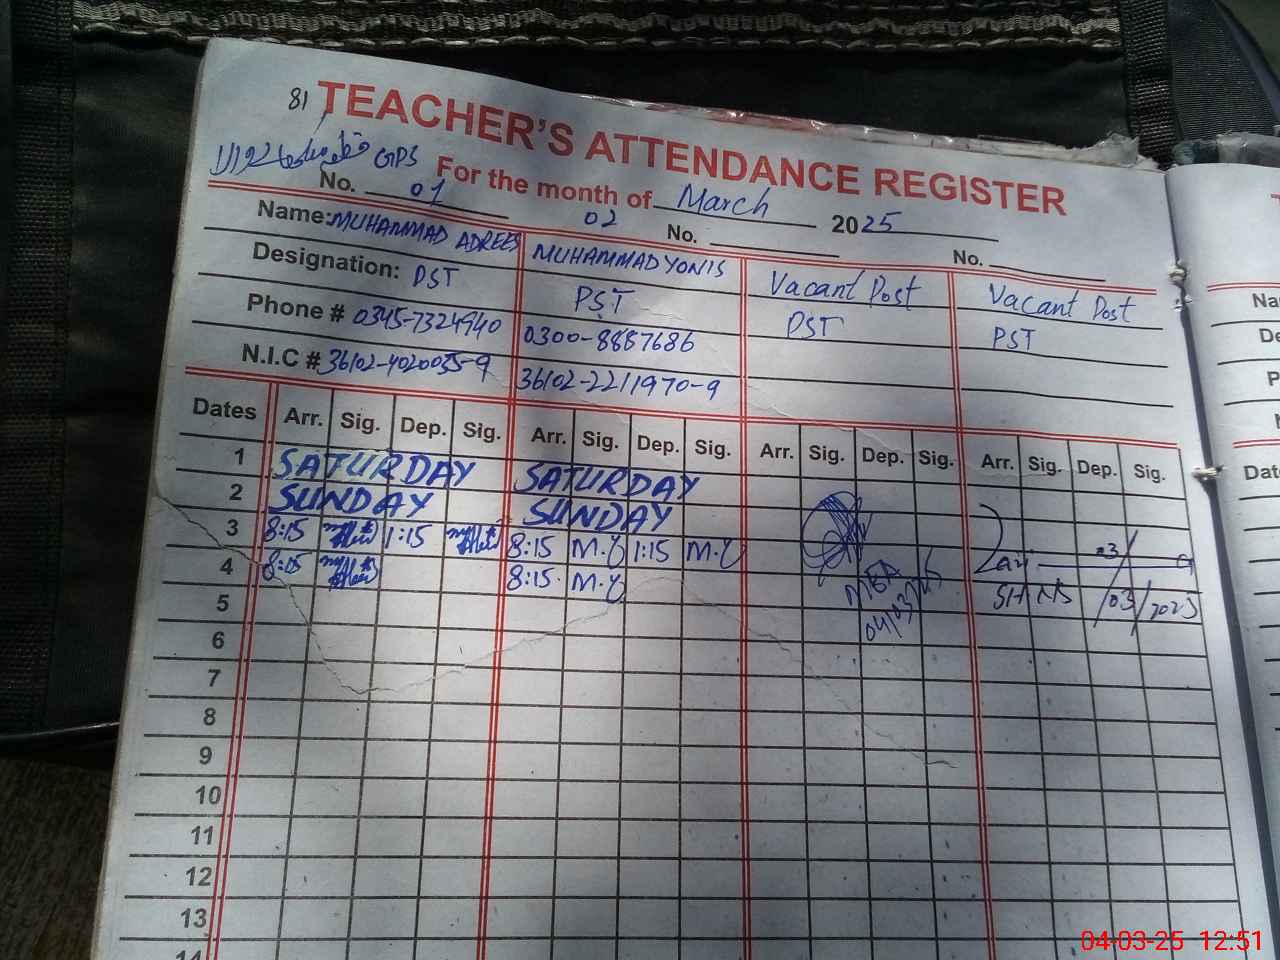 81 TEACHER'S ATTENDANCE REGISTER
GPS For the month of March 2025
No. 01 02 No. No.
Name: MUHAMMAD ADREES MUHAMMAD YONIS Vacant Post Vacant Post
Designation: PST PST PST PST
Phone # 0345-7324940 0300-8887686
N.I.C # 36102-4020035-9 36102-2211970-9
Dates Arr. Sig. Dep. Sig. Arr. Sig. Dep. Sig. Arr. Sig. Dep. Sig. Arr. Sig. Dep. Sig.
1 SATURDAY SATURDAY
2 SUNDAY SUNDAY
3 8:15 1:15 8:15 M.Y 1:15 M.Y
4 8:15 8:15 M.Y MEA
04/03/25
5
6
7
8
9
10
11
12
13
14
Na
De
P
Date
04-03-25 12:51